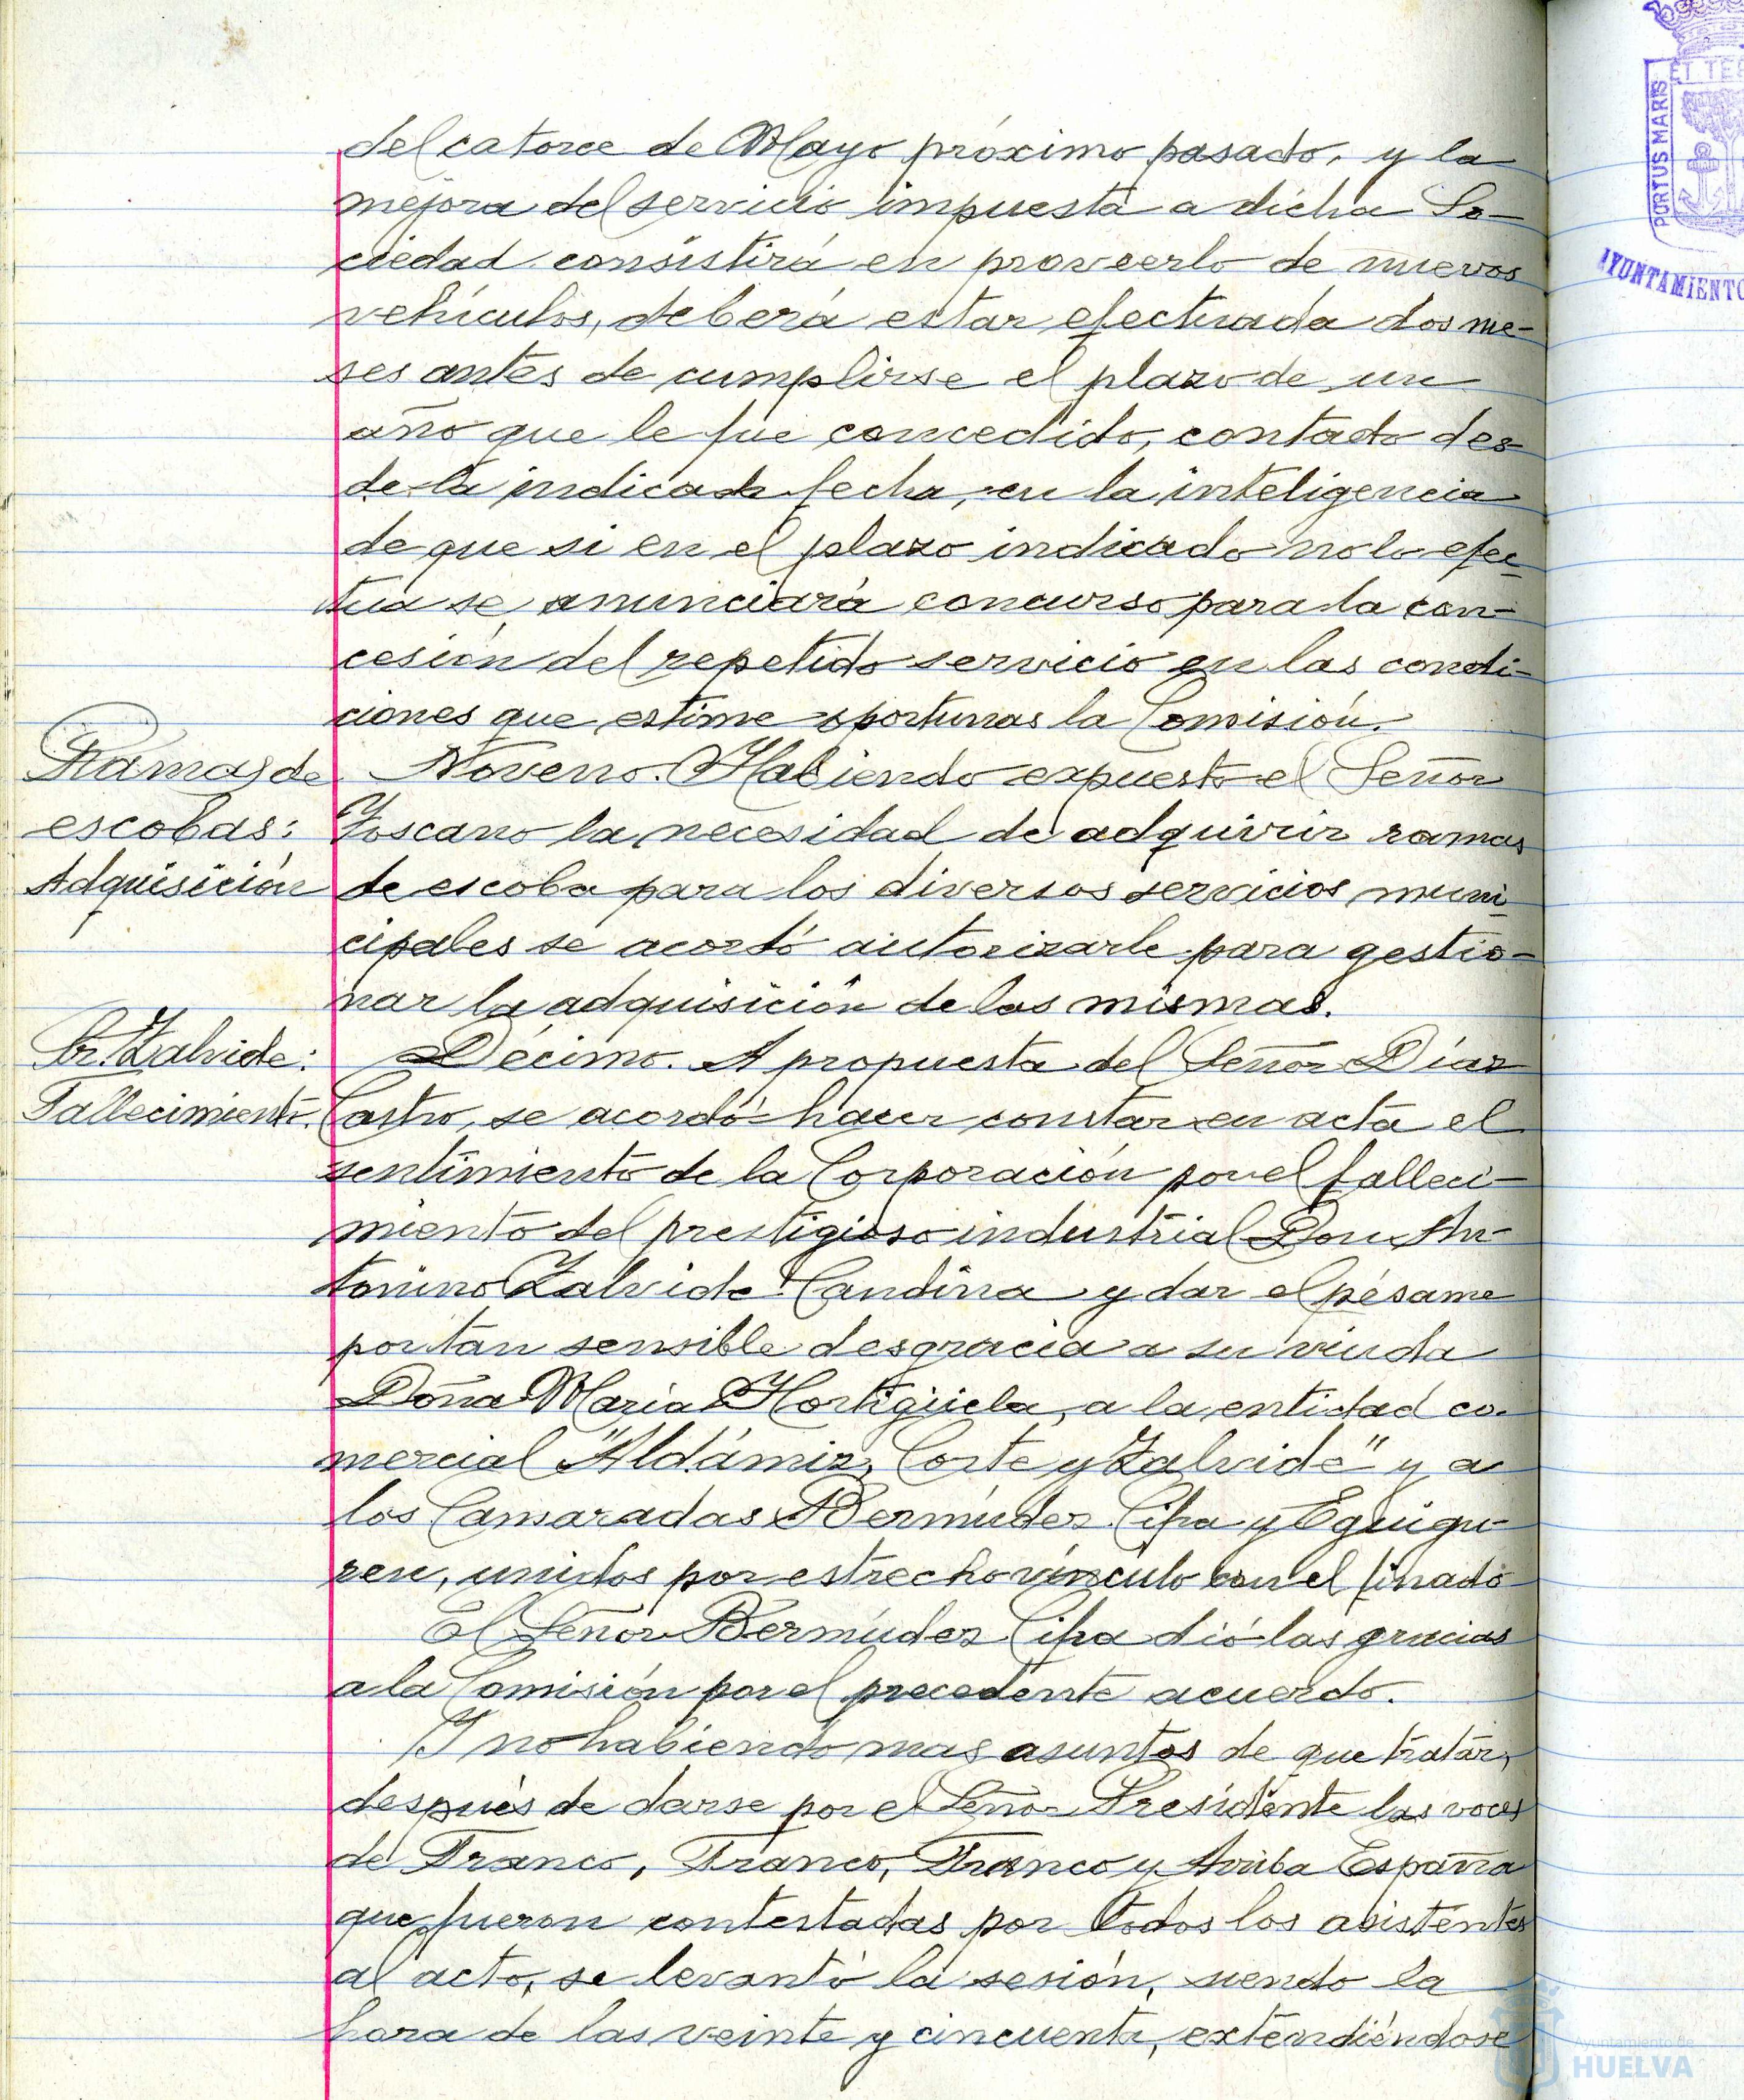 del catorce de Mayo próximo pasado, y la
mejora del servicio impuesta a dicha So-
ciedad consistirá en proveerlo de nuevos
vehículos, deberá estar efectuada dos me-
ses antes de cumplirse el plazo de un
año que le fue concedido, contado des-
de la indicada fecha, en la inteligencia
de que si en el plazo indicado no lo efec-
tua se anunciará concurso para la con-
cesión del repetido servicio en las condi-
ciones que estime oportunas la Comisión.
Ramas de
escobas:
Adquisición
Noveno. Habiendo expuesto el Señor
Toscano la necesidad de adquirir ramas
de escoba para los diversos servicios muni-
cipales se acordó autorizarle para gestio-
nar la adquisición de las mismas.
Sr. Zalvide:
Fallecimiento.
Décimo. A propuesta del Señor Díaz
Castro, se acordó hacer constar en acta el
sentimiento de la Corporación por el falleci-
miento del prestigioso industrial Don An-
tonino Zalvide Candina y dar el pésame
por tan sensible desgracia a su viuda
Doña María Hortigüela, a la entidad co-
mercial "Aldámiz, Corte y Zalvide" y a
los Camaradas Bermúdez Cifra y Eguigu-
ren, unidos por estrecho vínculo con el finado
El Señor Bermúdez Cifra dió las gracias
a la Comisión por el precedente acuerdo.
Y no habiendo mas asuntos de que tratar,
después de darse por el Señor Presidente las voces
de Franco, Franco, Franco y Arriba España
que fueron contestadas por todos los asistentes
al acto, se levantó la sesión, siendo la
hora de las veinte y cincuenta, extendiéndose
PORTUS MARIS
ET
AYUNTAMIENTO
Ayuntamiento de
HUELVA